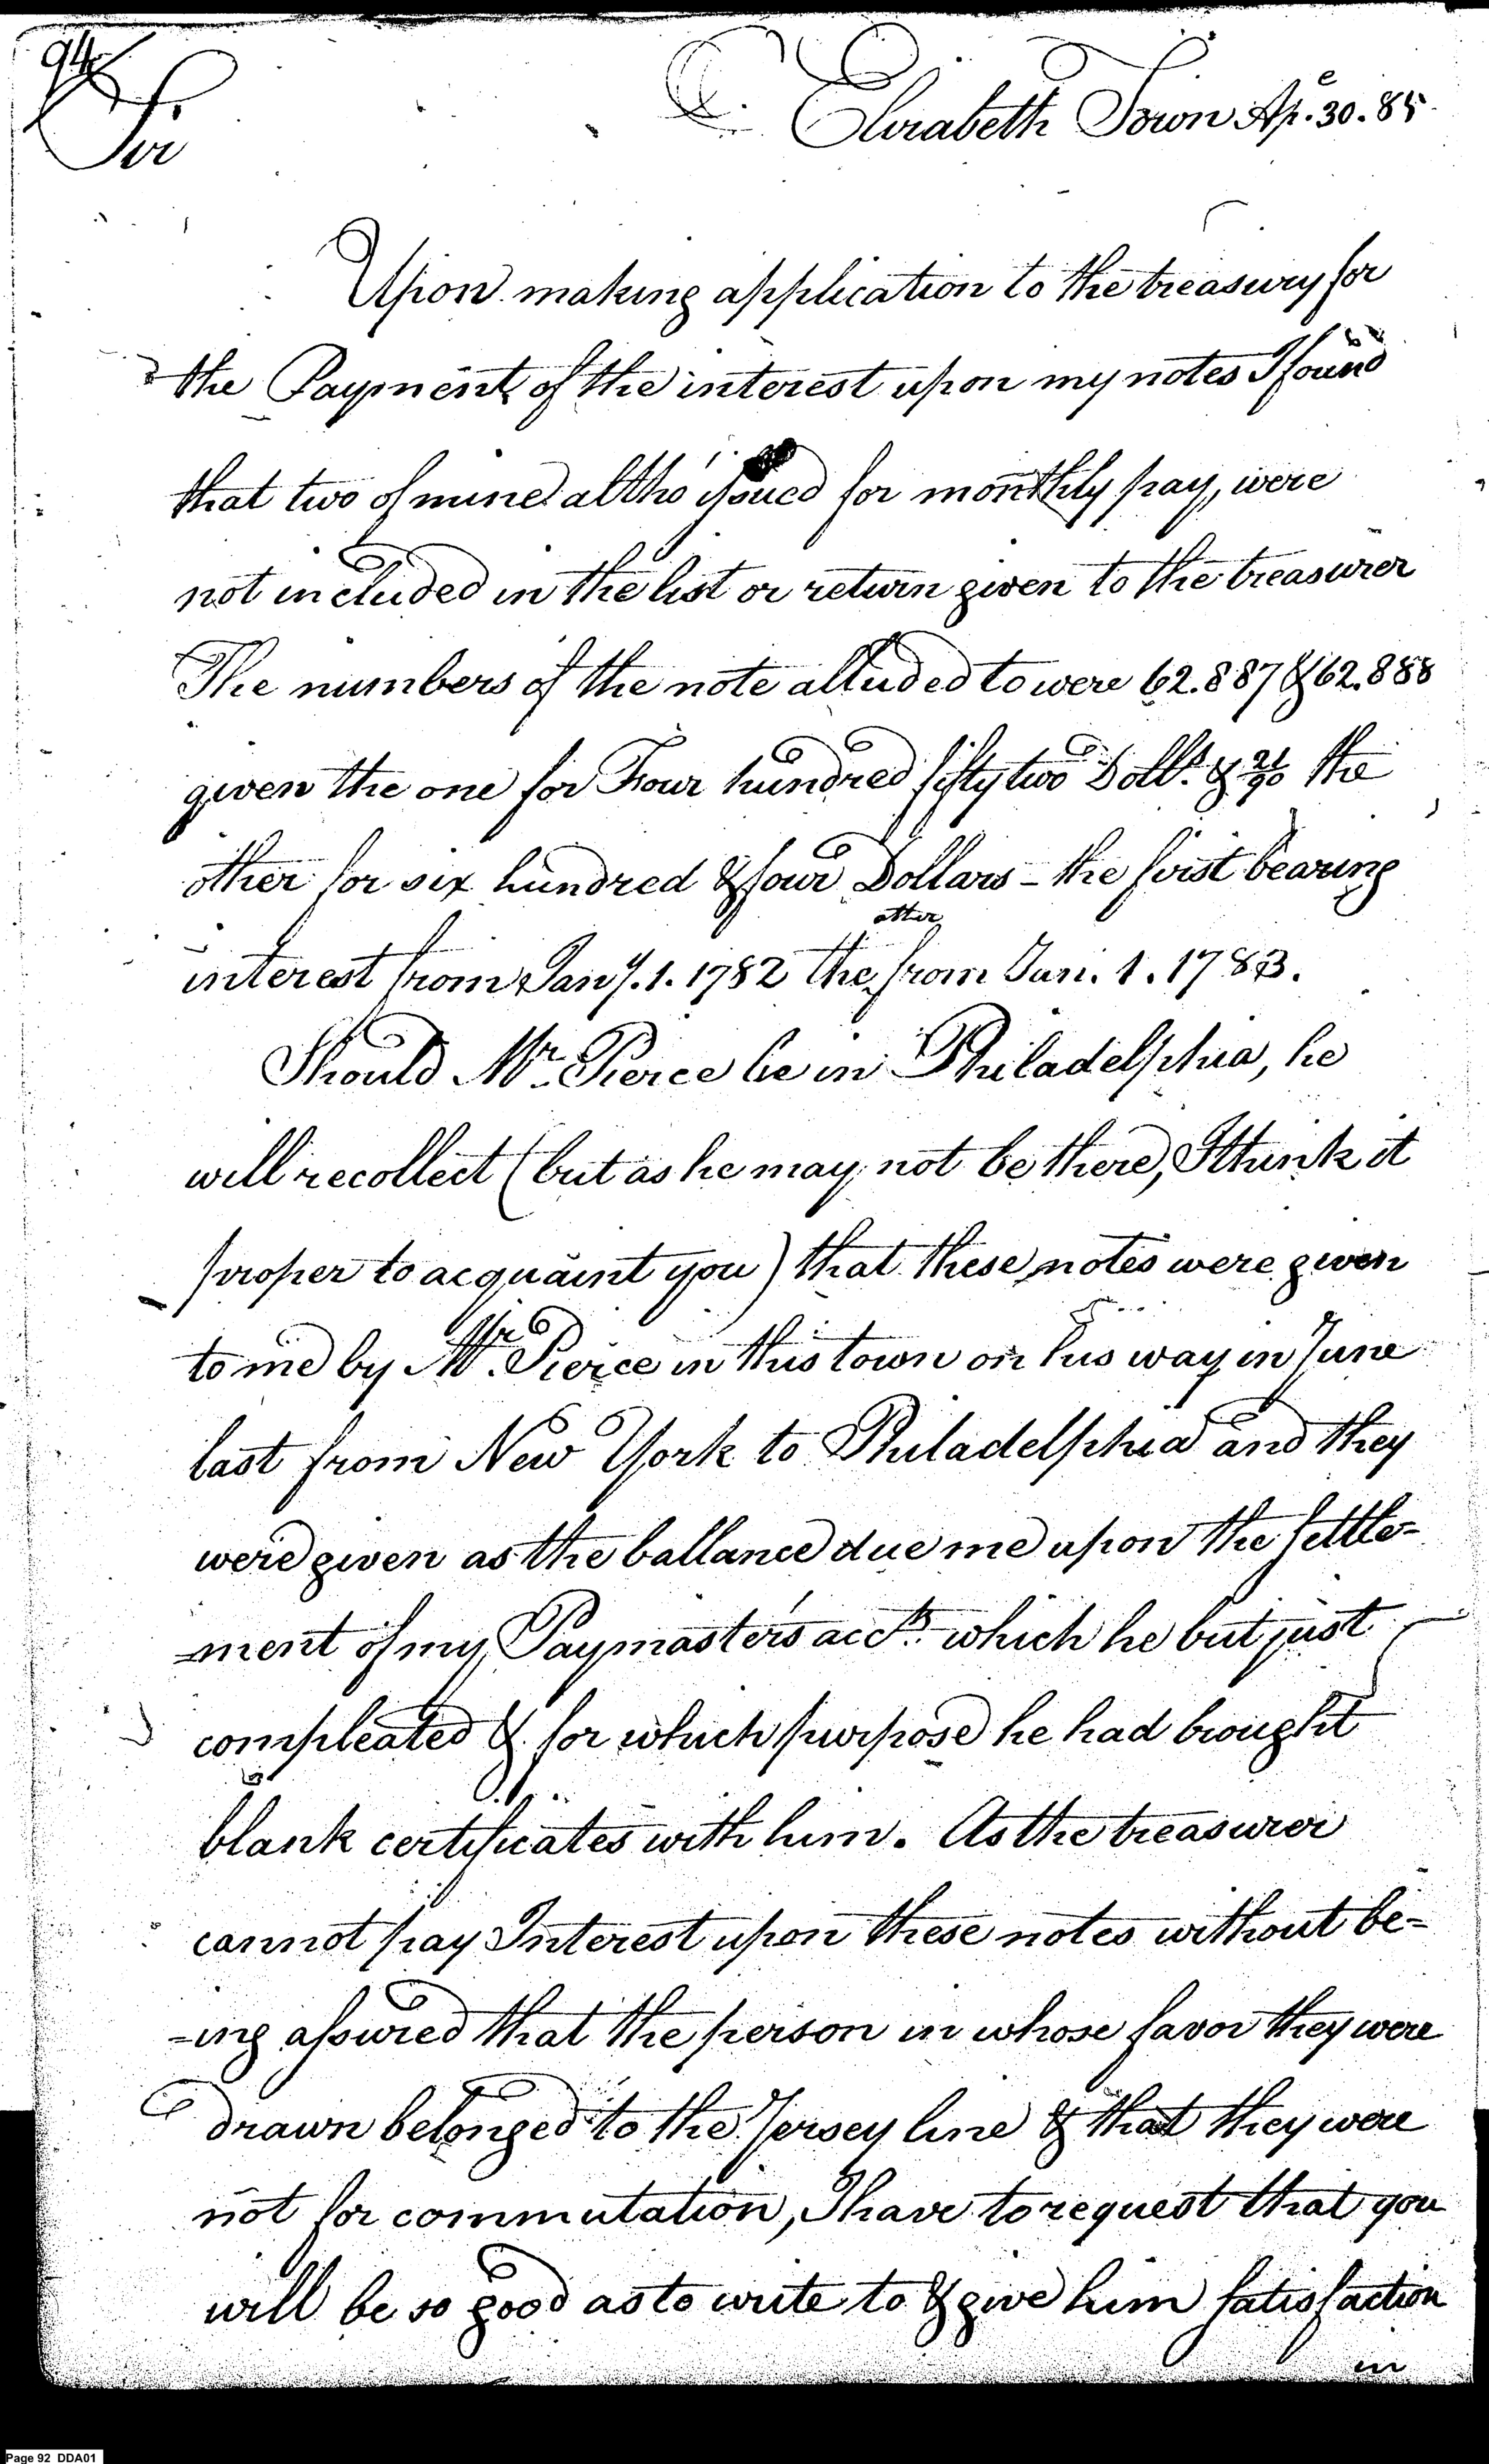 94
Elizabeth Town Ap.e 30. 85
Sir
Upon making application to the treasury for
the Payment of the interest upon my notes I found
that two of mine altho' issued for monthly pay, were
not included in the list or return given to the treasurer
The numbers of the note alluded to were 62.887 & 62.888
given the one for Four hundred fifty two Dolls. & 21/90 the
other for six hundred & four Dollars - the first bearing
interest from Jany. 1. 1782 the other from Jan. 1. 1783.
Should Mr. Pierce be in Philadelphia, he
will recollect (but as he may not be there, I think it
proper to acquaint you) that these notes were given
to me by Mr. Pierce in this town on his way in June
last from New York to Philadelphia and they
were given as the ballance due me upon the settle=
=ment of my Paymaster's accts. which he but just
compleated & for which purpose he had brought
blank certificates with him. As the treasurer
cannot pay Interest upon these notes without be=
=ing assured that the person in whose favor they were
drawn belonged to the Jersey line & that they were
not for commutation, I have to request that you
will be so good as to write to & give him satisfaction
in
Page 92 DDA01